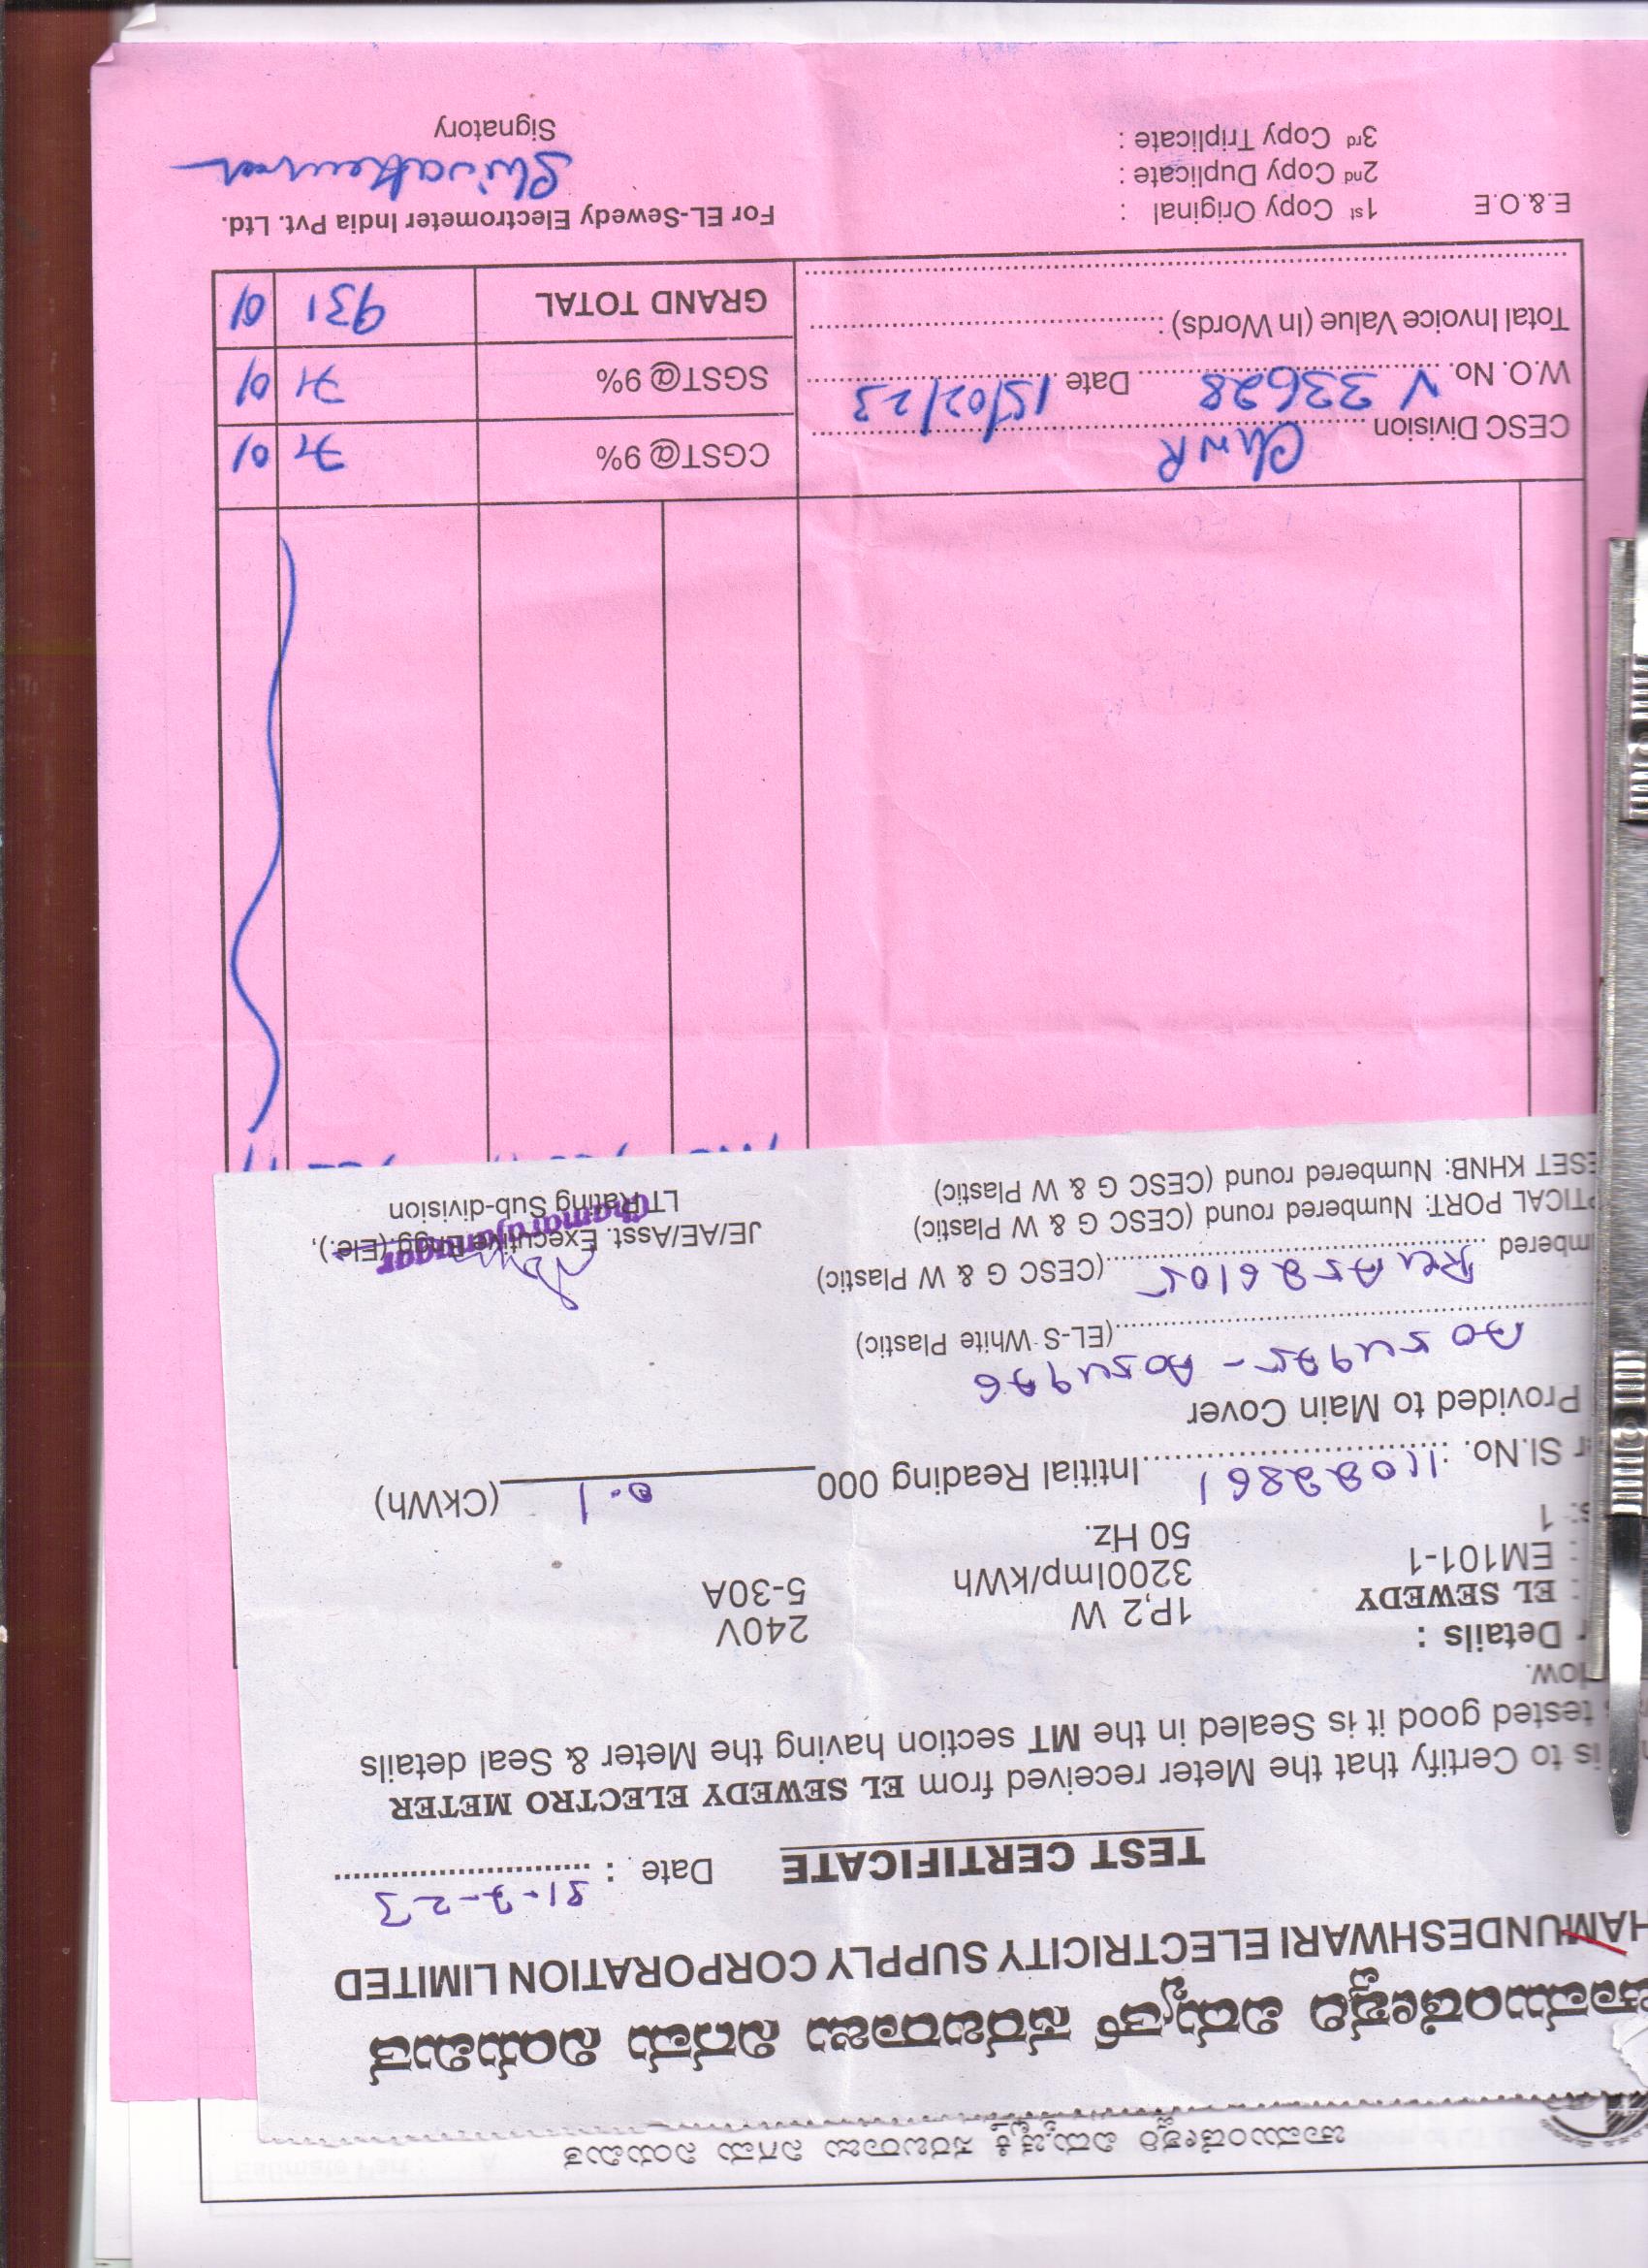 ಚಾಮುಂಡೇಶ್ವರಿ ವಿದ್ಯುಚ್ಛಕ್ತಿ ಸರಬರಾಜು ನಿಗಮ ನಿಯಮಿತ
ಚಾಮುಂಡೇಶ್ವರಿ ವಿದ್ಯುತ್ ಸರಬರಾಜು ನಿಗಮ ನಿಯಮಿತ
HAMUNDESHWARI ELECTRICITY SUPPLY CORPORATION LIMITED
TEST CERTIFICATE Date : 21-2-23
is to Certify that the Meter received from EL SEWEDY ELECTRO METER
tested good it is Sealed in the MT section having the Meter & Seal details
low.
r Details : 1P,2 W 240V
: EL SEWEDY 3200Imp/kWh 5-30A
: EM101-1 50 Hz.
s: 1
r Sl.No. : Intitial Reading 000 0.1 (CkWh)
Provided to Main Cover
(EL-S White Plastic)
mbered (CESC G & W Plastic)
PTICAL PORT: Numbered round (CESC G & W Plastic)
ESET KHNB: Numbered round (CESC G & W Plastic)
JE/AE/Asst. Executive Engg.(Ele.),
LT Rating Sub-division
Chamarajanagar
CESC Division ChnR CGST@ 9% 71 01
W.O. No. V 33628 Date 15/02/23 SGST@ 9% 71 01
Total Invoice Value (In Words) : GRAND TOTAL 931 01
E.& O.E 1st Copy Original : For EL-Sewedy Electrometer India Pvt. Ltd.
2nd Copy Duplicate :
3rd Copy Triplicate :
Shivakumar
Signatory